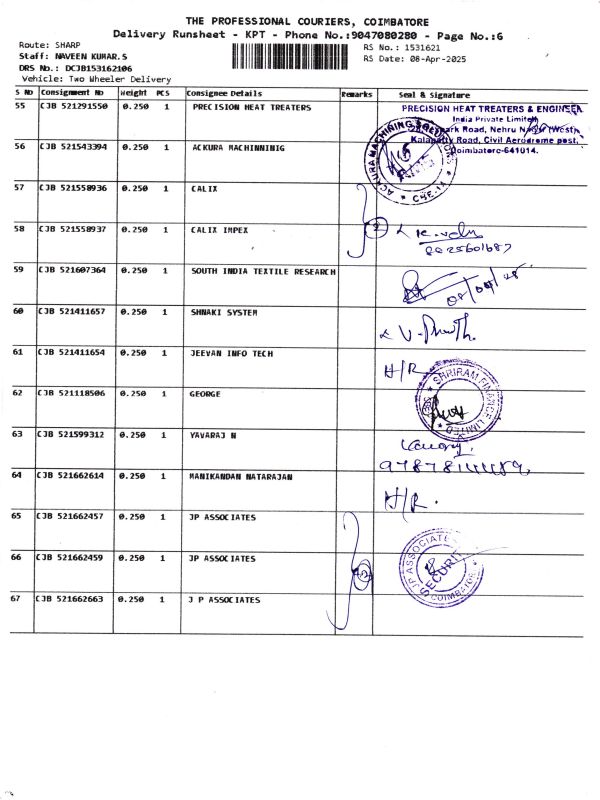 THE PROFESSIONAL COURIERS, COIMBATORE
Delivery Runsheet - KPT - Phone No.:9047080280 - Page No.:6
Route: SHARP
Staff: NAVEEN KUMAR.S
DRS No.: DCJB153162106
Vehicle: Two Wheeler Delivery
RS No.: 1531621
RS Date: 08-Apr-2025
S NO Consignment No Weight PCS Consignee Details Remarks Seal & Signature
55 CJB 521291550 0.250 1 PRECISION HEAT TREATERS
PRECISION HEAT TREATERS & ENGINEER
India Private Limited
Park Road, Nehru Nagar (West),
Kalapatty Road, Civil Aerodrome post,
Coimbatore-641014.
56 CJB 521543394 0.250 1 ACKURA MACHINNINIG
ACKURA MACHINING SOLUTIONS
57 CJB 521558936 0.250 1 CALIX
58 CJB 521558937 0.250 1 CALIX IMPEX
2
59 CJB 521607364 0.250 1 SOUTH INDIA TEXTILE RESEARCH
08/04/25
60 CJB 521411657 0.250 1 SHNAKI SYSTEM
61 CJB 521411654 0.250 1 JEEVAN INFO TECH
H/R
62 CJB 521118506 0.250 1 GEORGE
SHRIRAM FINANCE LIMITED
63 CJB 521599312 0.250 1 YAVARAJ N
64 CJB 521662614 0.250 1 MANIKANDAN NATARAJAN
H/R.
65 CJB 521662457 0.250 1 JP ASSOCIATES
66 CJB 521662459 0.250 1 JP ASSOCIATES
JP ASSOCIATES
SECURITY
COIMBATORE
67 CJB 521662663 0.250 1 J P ASSOCIATES